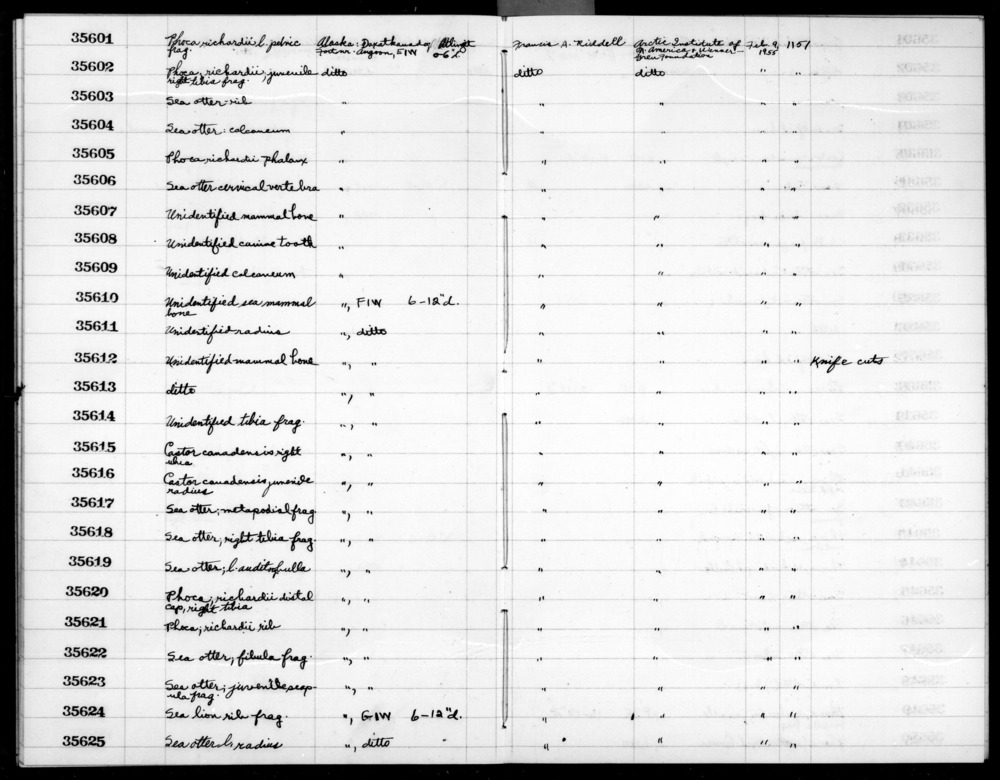 35601 Phoca richardii l. pelvic Alaska: Daxatkanada, Tlingit Francis A. Riddell Arctic Institute of Feb. 9, 1151
frag. Fort nr. Angoon, E1W 0-6"d. N. America & Wenner- 1955
Gren Foundation
35602 Phoca, richardii, juvenile ditto ditto ditto " "
right tibia frag.
35603 Sea otter: rib " " " " "
35604 Sea otter: calcaneum " " " " "
35605 Phoca richardii phalanx " " " " "
35606 Sea otter cervical vertebra " " " " "
35607 Unidentified mammal bone " " " " "
35608 Unidentified canine tooth " " " " "
35609 Unidentified calcaneum " " " " "
35610 Unidentified sea mammal ", F1W 6-12"d. " " " "
bone
35611 Unidentified radius ", ditto " " " "
35612 Unidentified mammal bone ", " " " " " Knife cuts
35613 ditto ", " " " " "
35614 Unidentified tibia frag. ", " " " " "
35615 Castor canadensis right ", " " " " "
35616 Castor canadensis juvenile ", " " " " "
radius
35617 Sea otter; metapodial frag. ", " " " " "
35618 Sea otter; right tibia frag. ", " " " " "
35619 Sea otter; l. audit. bulla ", " " " " "
35620 Phoca; richardii distal ", " " " " "
cap, right tibia
35621 Phoca; richardii rib ", " " " " "
35622 Sea otter; fibula frag. ", " " " " "
35623 Sea otter; juvenile scap- ", " " " " "
ula frag.
35624 Sea lion rib frag. ", G1W 6-12"d. " " " "
35625 Sea otter l. radius ", ditto " " " " "